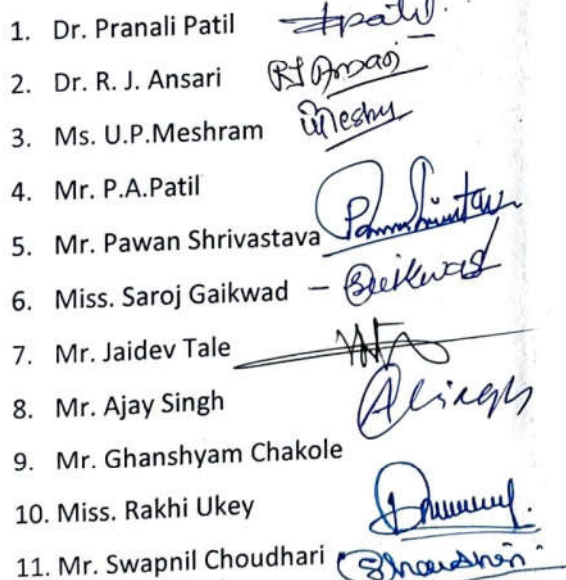 1. Dr. Pranali Patil
2. Dr. R. J. Ansari RJ Ansari
3. Ms. U.P.Meshram
4. Mr. P.A.Patil
5. Mr. Pawan Shrivastava
6. Miss. Saroj Gaikwad –
7. Mr. Jaidev Tale
8. Mr. Ajay Singh ASingh
9. Mr. Ghanshyam Chakole
10. Miss. Rakhi Ukey
11. Mr. Swapnil Choudhari